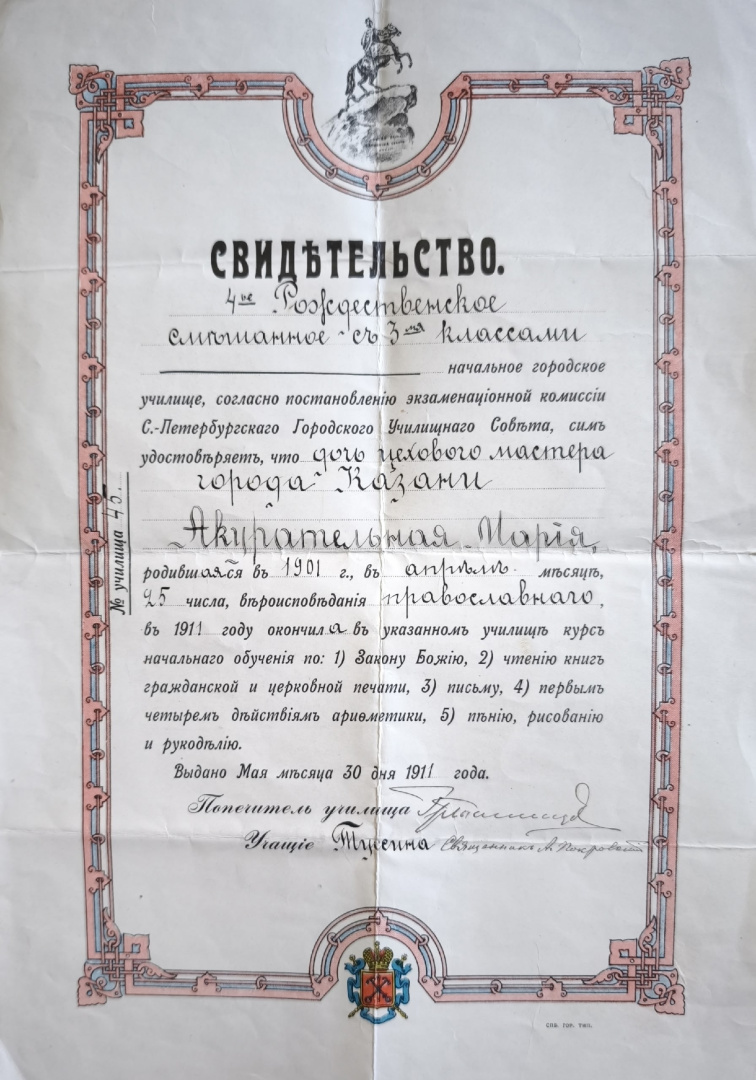 СВИДѢТЕЛЬСТВО.
4ое Рождественское
смѣшанное съ 3мя классами
начальное городское
училище, согласно постановленію экзаменаціонной комиссіи
С.-Петербургскаго Городского Училищнаго Совѣта, симъ
удостовѣряетъ, что дочь цехового мастера
города Казани
Акурательная Марія,
родившаяся въ 1901 г., въ апрѣлѣ мѣсяцѣ,
25 числа, вѣроисповѣданія православнаго,
въ 1911 году окончила въ указанномъ училищѣ курсъ
начальнаго обученія по: 1) Закону Божію, 2) чтенію книгъ
гражданской и церковной печати, 3) письму, 4) первымъ
четыремъ дѣйствіямъ ариѳметики, 5) пѣнію, рисованію
и рукодѣлію.
Выдано Мая мѣсяца 30 дня 1911 года.
Попечитель училища
Учащіе Тусина Священникъ А. Покровскій
№ училища 45.
СПБ. ГОР. ТИП.